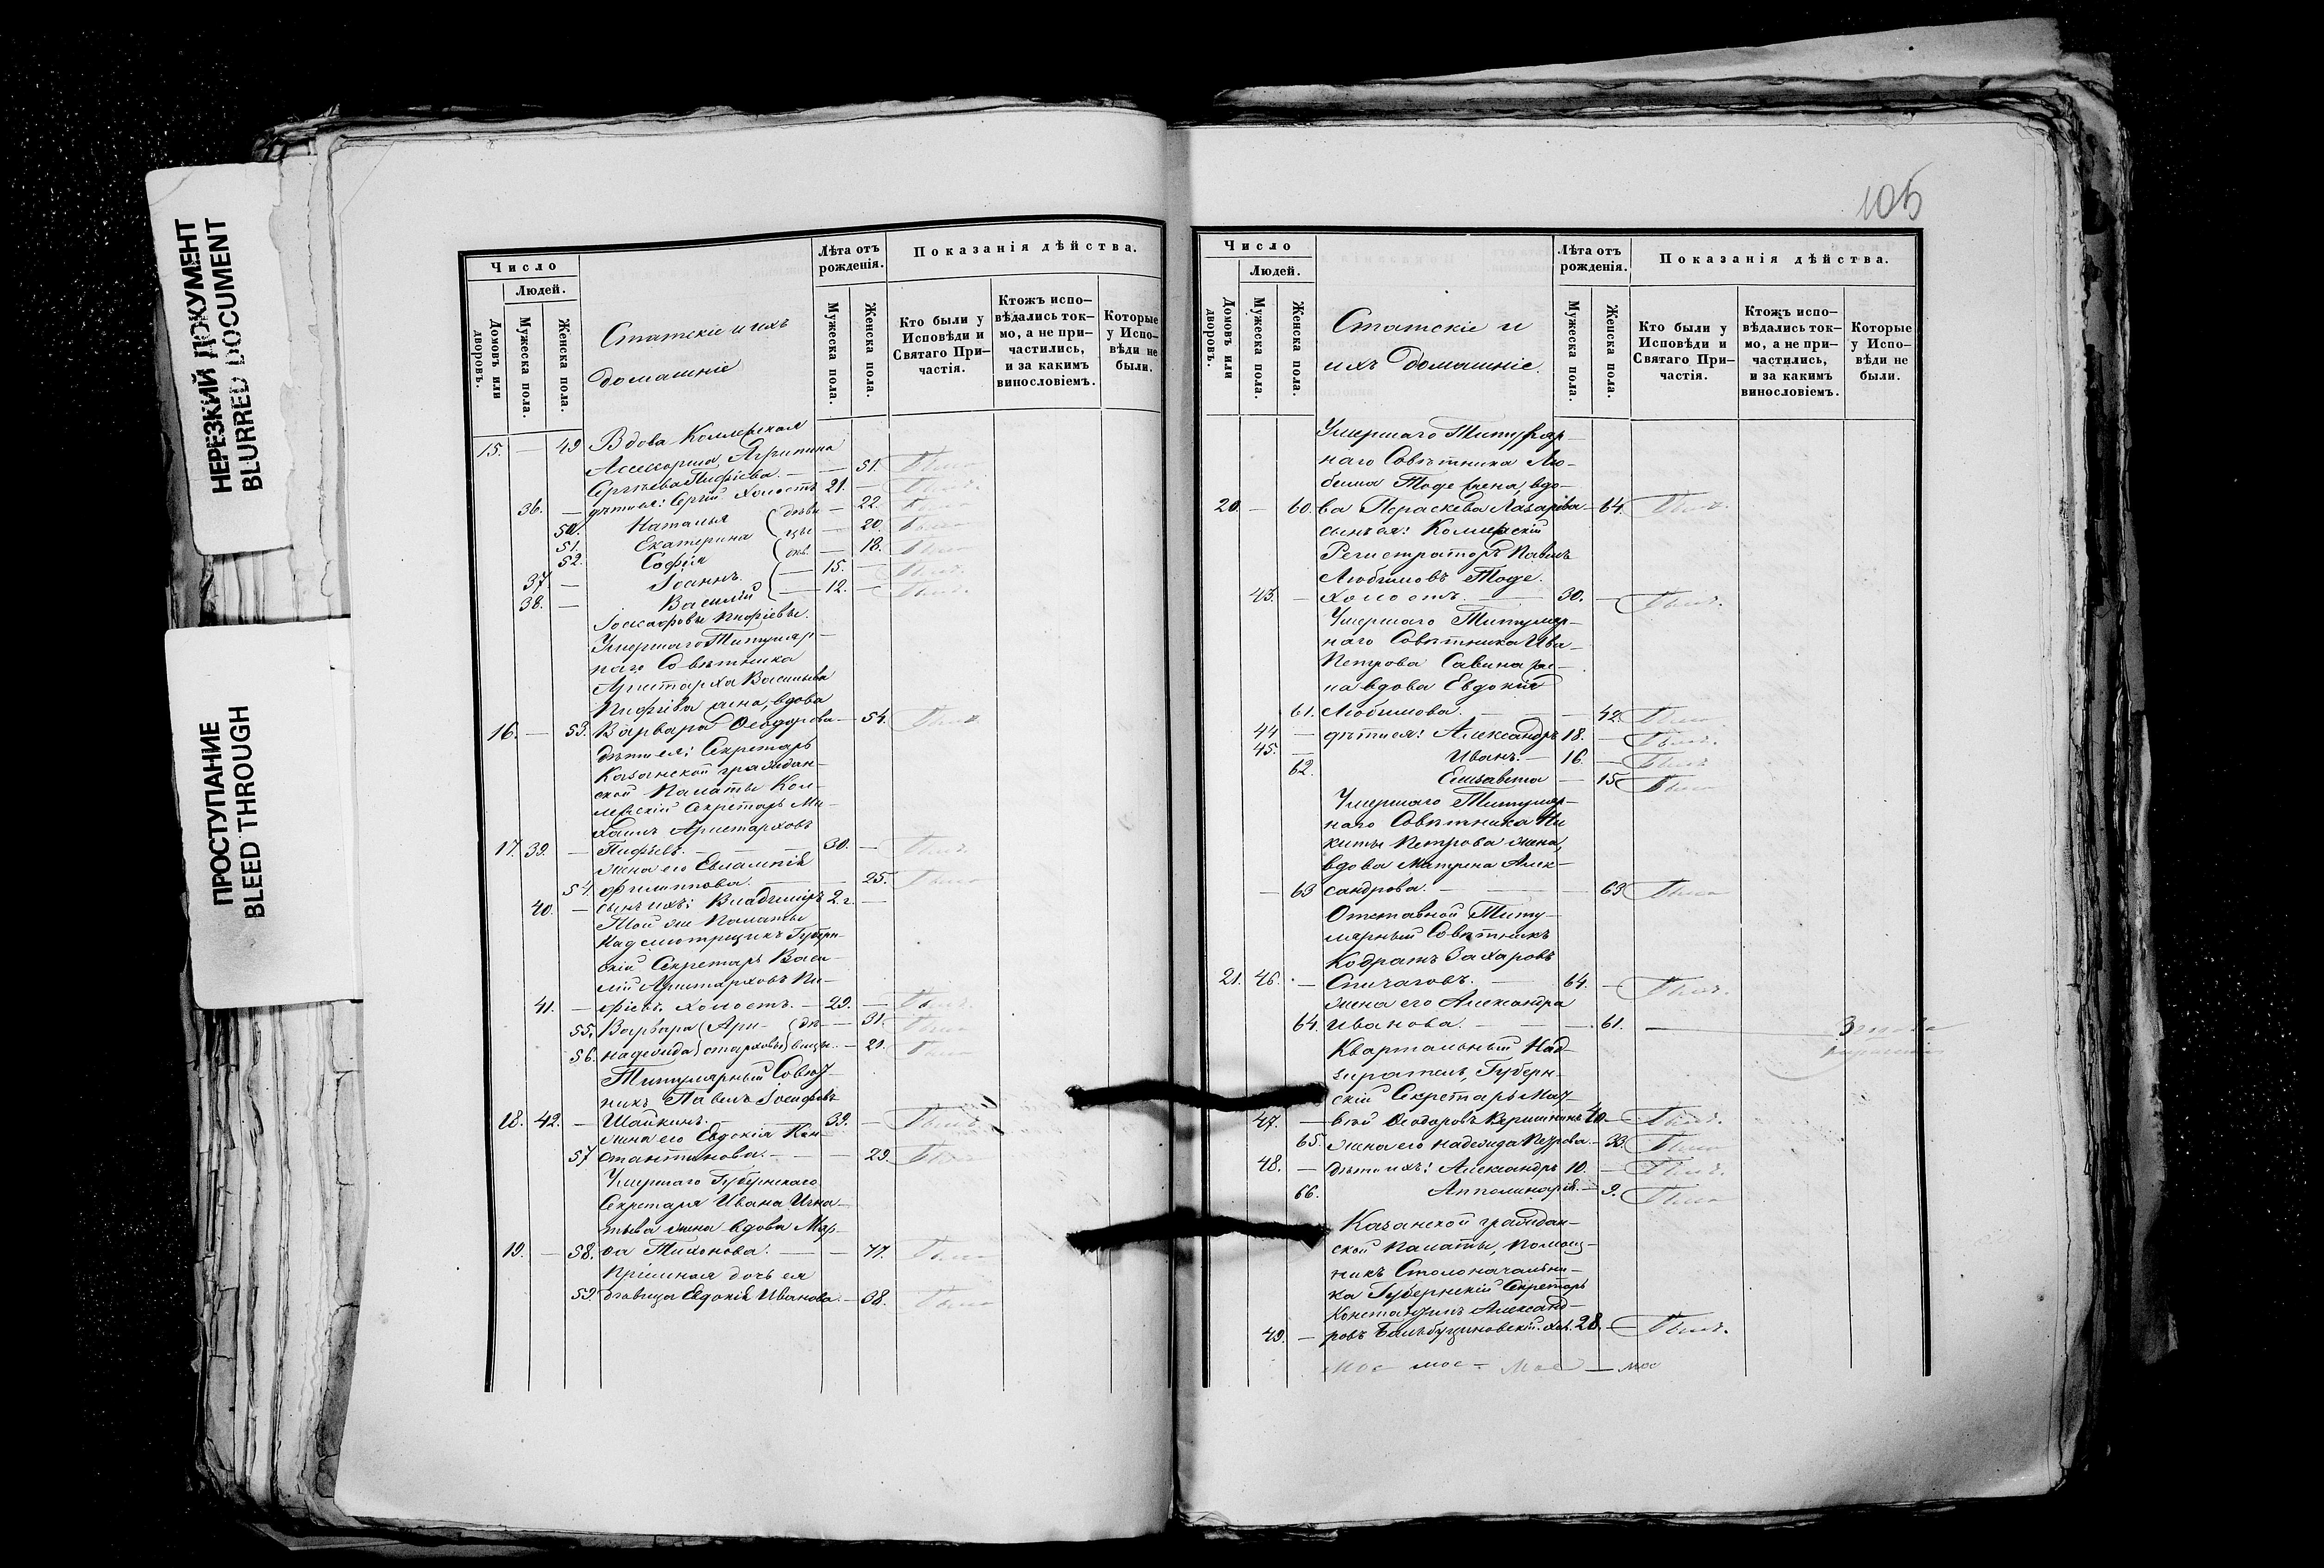 НЕРЕЗКИЙ ДОКУМЕНТ
BLURRED DOCUMENT
ПРОСТУПАНИЕ
BLEED THROUGH
Число
Людей.
Домовъ или дворовъ.
Мужеска пола.
Женска пола.
Статскіе и ихъ
домашніе
Лѣта отъ рожденія.
Мужеска пола.
Женска пола.
Показанія дѣйства.
Кто были у Исповѣди и Святаго Причастія.
Ктожъ исповѣдались токмо, а не причастились, и за какимъ винословіемъ.
Которые у Исповѣди не были.
15. — 49 Вдова Коллежская
Ассесорша Агрипина
Сергѣева Пифіева. — — 51. Была
36. — дѣти ея: Сергій холостъ 21. — Былъ.
50. Наталья (дѣви — 22. Была
51. Екатерина цы — 20. Была
52. Софія — 18. Была
37. — Іоаннъ — 15. — Былъ.
38. — Василій — 12. — Былъ.
Іоасафовы Пифіевы.
Умершаго Титуляр-
наго Совѣтника
Аристарха Васильева
Пифіева жена, вдова
16. — 53. Варвара Ѳеодорова — 54. Была
дѣти ея: Секретарь
Казанской граждан-
ской Палаты Кол-
лежскій Секретарь Ми-
хаилъ Аристарховъ
17. 39. — Пифіевъ. — 30. — Былъ
жена его Евлампія
54. Филиппова. — 25. Была
40. — сынъ ихъ: Владиміръ 2 г. —
Той же Палаты
Надсмотрщикъ Губерн-
скій Секретарь Васи-
лій Аристарховъ Пи-
41. — фіевъ холостъ. — 29. — Былъ.
55. Варвара (Ари- (дѣ — 31. Была
56. Надежда) старховы) вицы. — 21. Была
Титулярный Совѣт-
никъ Павелъ Іосифовъ
18. 42. — Шайкинъ. 39. — Былъ
жена его Евдокія Кон-
57 стантинова. — — 29. Была
Умершаго Губернскаго
Секретаря Ивана Игна-
тьева жена вдова Мар-
19. — 58. ѳа Тихонова. — — 77. Была
Пріемная дочь ея
59. дѣвица Евдокія Иванова. — 38. Была
105
Число
Людей.
Домовъ или дворовъ.
Мужеска пола.
Женска пола.
Статскіе и
ихъ домашніе.
Лѣта отъ рожденія.
Мужеска пола.
Женска пола.
Показанія дѣйства.
Кто были у Исповѣди и Святаго Причастія.
Ктожъ исповѣдались токмо, а не причастились, и за какимъ винословіемъ.
Которые у Исповѣди не были.
Умершаго Титуляр-
наго Совѣтника Лю-
бима Тоде жена, вдо-
20. — 60. ва Параскева Лазарева — 64. Была
сынъ ея: Коллежскій
Регистраторъ Павелъ
Любимовъ Тоде.
43. — холостъ. — 30. — Былъ.
Умершаго Титуляр-
наго Совѣтника Ива
Петрова Савина же-
на вдова Евдокія
61. Любимова. — — 42. Была
44 — дѣти ея: Александръ 18. — Былъ.
45. — Иванъ. — 16. — Былъ
62. Елизавета — 15 Была
Умершаго Титуляр-
наго Совѣтника Ни
киты Петрова жена,
вдова Матрена Алек-
— 63 сандрова. — — 69 Была
Отставной Титу-
лярный Совѣтникъ
Кодратъ Захаровъ
21. 46. — Спичаговъ. — 64. — Былъ.
жена его Александра
64. Иванова. — — 61. —
Квартальный Над-
зиратель, Губерн-
скій Секретарь Мат-
47. — вѣй Ѳеодоровъ Вершининъ 40 — Былъ.
65. жена его Надежда Петрова — 33. Была
48. — дѣти ихъ: Александръ 10. — Былъ.
66. Апполинарія. — 9. Была
Казанской граждан-
ской Палаты, Помощ-
никъ Столоначальни-
ка Губернскій Секретарь
Константинъ Александ-
49. — ровъ хол. 28. — Былъ.